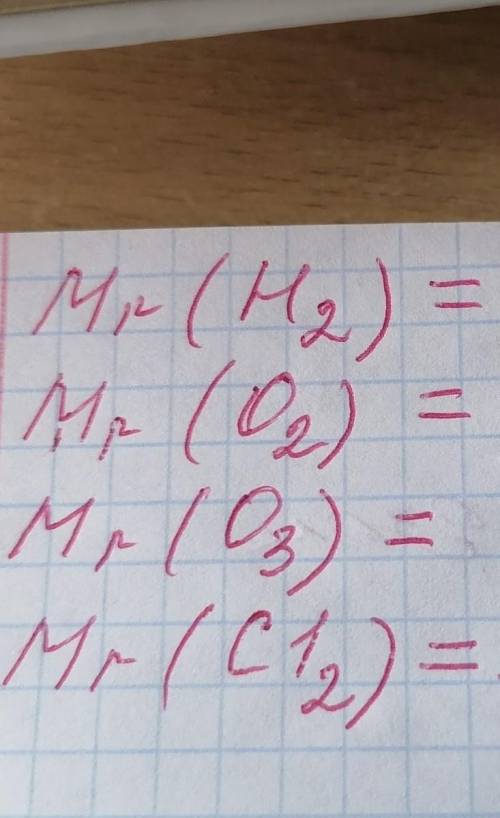 Mr (H2) =
Mr (O2) =
Mr (O3) =
Mr (Cl2) =